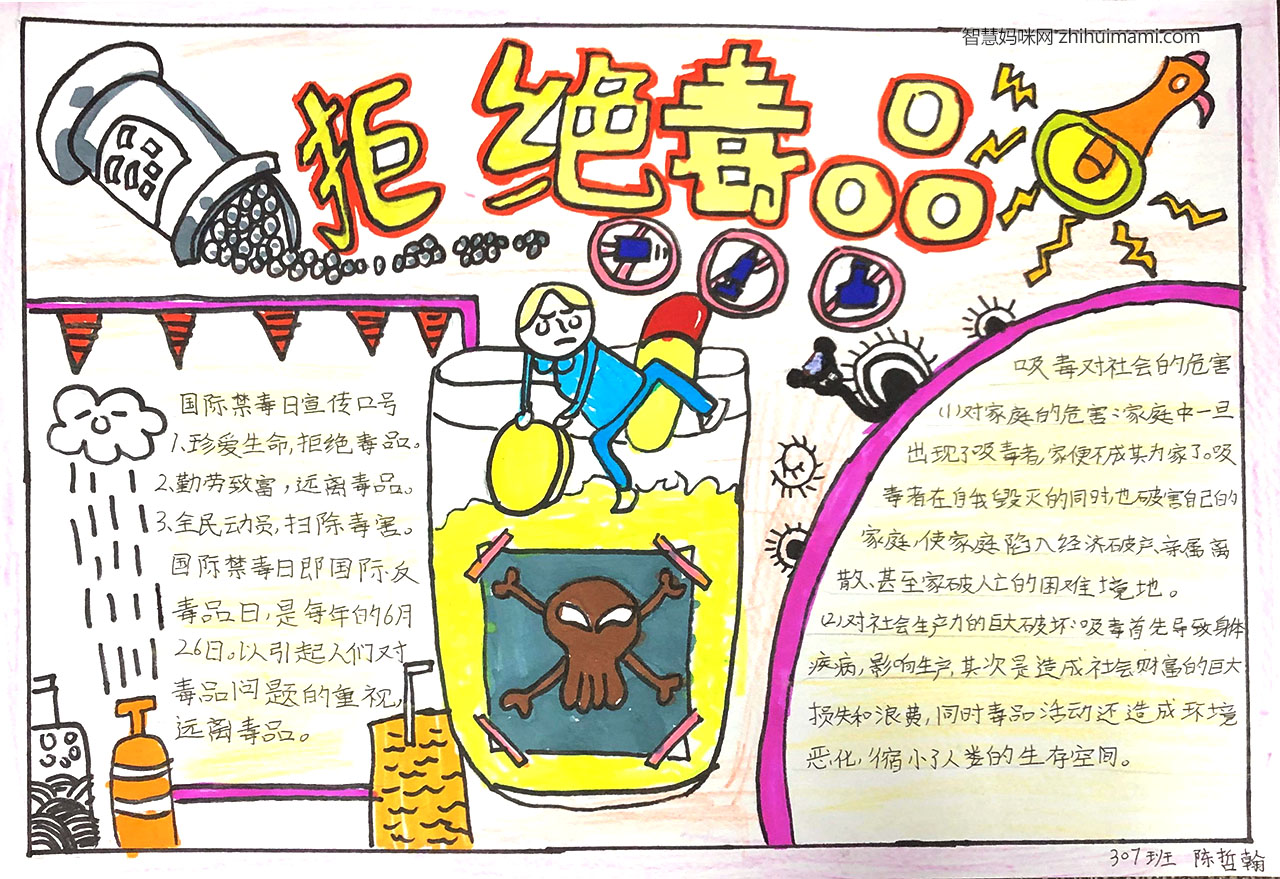 智慧妈咪网 zhihuimami.com
拒绝毒品
国际禁毒日宣传口号
1.珍爱生命,拒绝毒品。
2.勤劳致富,远离毒品。
3.全民动员,扫除毒害。
国际禁毒日即国际反
毒品日,是每年的6月
26日。以引起人们对
毒品问题的重视,
远离毒品。
吸毒对社会的危害
(1)对家庭的危害:家庭中一旦
出现了吸毒者,家便不成其为家了。吸
毒者在自我毁灭的同时,也破害自己的
家庭,使家庭陷入经济破产、亲属离
散、甚至家破人亡的困难境地。
(2)对社会生产力的巨大破坏:吸毒首先导致身体
疾病,影响生产,其次是造成社会财富的巨大
损失和浪费,同时毒品活动还造成环境
恶化,缩小了人类的生存空间。
307班 陈哲翰